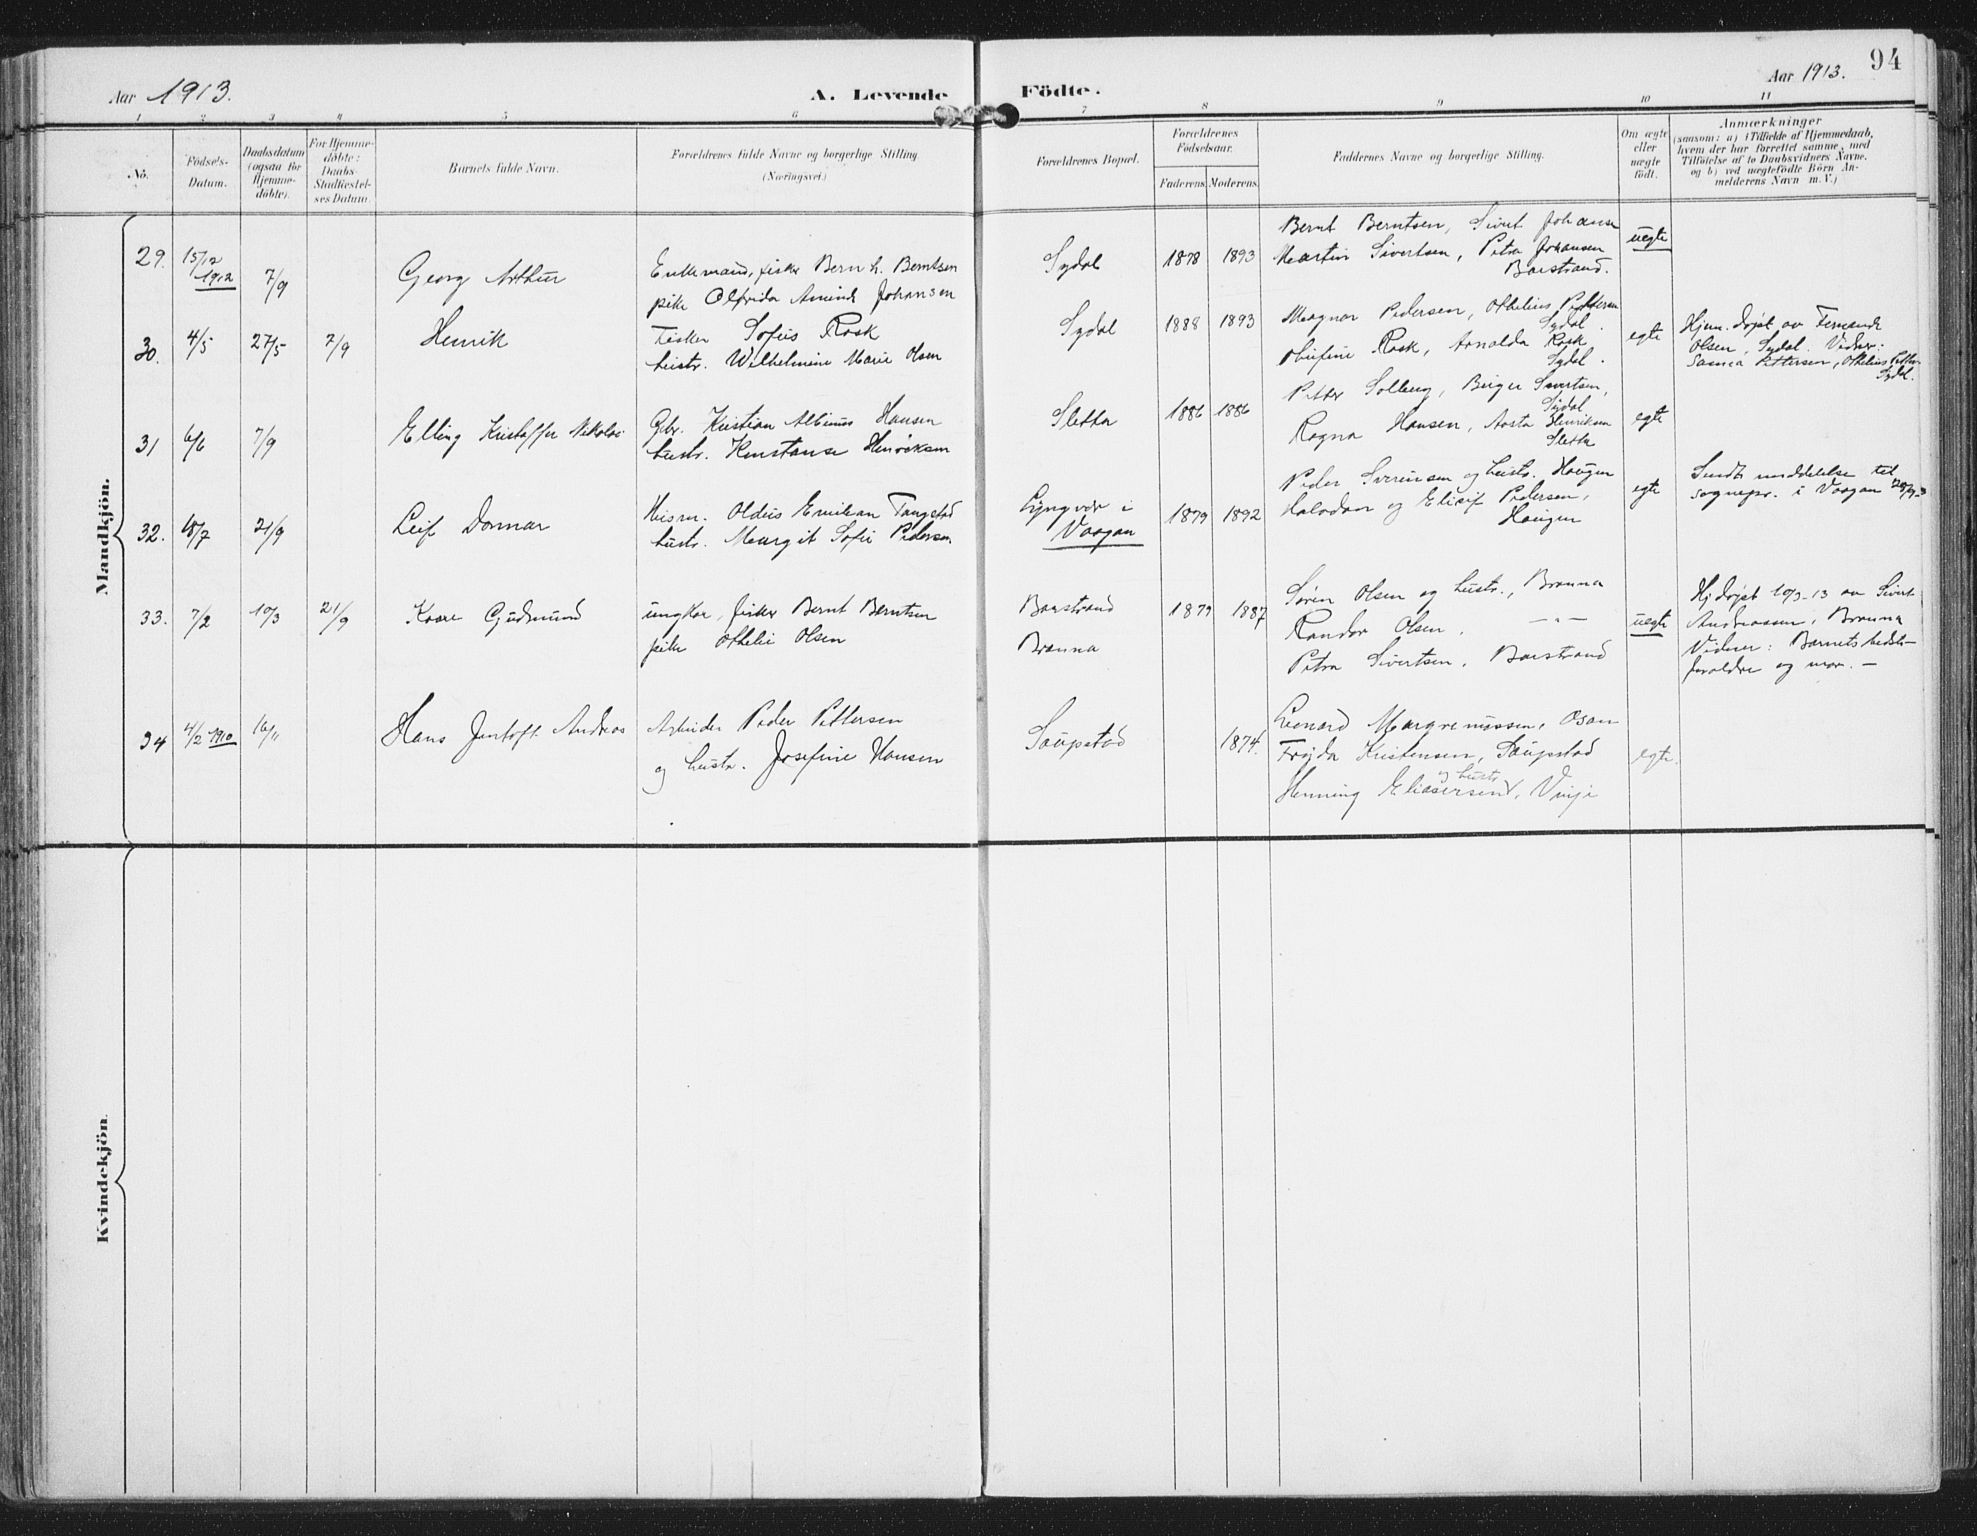 94
Aar 1913.
A. Levende
Födte.
Aar 1913.
1 2 3 4 5 6 7 8 9 10 11
No.
Födsels-
Datum.
Daabsdatum
(ogsaa for
Hjemme-
döbte).
For Hjemme-
döbte:
Daabs-
Stadfæstel-
ses Datum.
Barnets fulde Navn.
Forældrenes fulde Navne og borgerlige Stilling
(Næringsvei.)
Forældrenes Bopæl.
Forældrenes
Födselsaar.
Faderens. Moderens.
Faddernes Navne og borgerlige Stilling.
Om ægte
eller
uægte
födt.
Anmærkninger
(saasom: a) i Tilfælde af Hjemmedaab,
hvem der har forrettet samme, med
Tilföielse af to Daabsvidners Navne.
og b) ved uægtefödte Börn An-
melderens Navn m. V.)
Mandkjön.
29. 15/12 1912 7/9 Georg Arthur
Enkemand, fisker Bernh. Berntsen
pike Olfrida Amind Johansen
Sydal 1878 1893
Bernt Berntsen, Sivert Johansen
Martin Sivertsen, Petra Johansen
Barstrand.
uegte
30. 4/5 27/5 7/9 Henrik
Fisker Sofus Rask
hustr. Wilhelmine Marie Olsen
Sydal 1888 1893
Magnar Pedersen, Othelius Pettersen
Sydal.
Rask, Arnolda Rask
Sydal.
egte
Hjem. døpt av Fernande
Olsen, Sydal. Vidner:
Pettersen, Othelius Petter
Sydal.
31 6/6 7/9 Elling Kristoffer Nikolai
Gbr. Kristian Albinus Hansen
hustr. Konstanse Henriksen
Sletta 1886 1886
Petter Solberg, Birger Sivertsen,
Sydal
Ragna Hansen, Aasta Henriksen
Sletta
egte
32. 18/7 21/9 Leif Donmar
Husm. Oldus Emilian Tangstad
hustr. Margit Sofie Pedersen
Lyngvær i
Vaagan
1879 1892
Peder Sverensen og hustr. Haugen
Halvdan og Elisif Pedersen,
Haugen
egte
Sendt meddelelse til
sognepr. i Vaagan 28/9-13
33. 7/2 10/3 21/9 Kaare Gudmund
ungkar, fisker Bernt Berntsen
pike Othelie Olsen
Barstrand
Brenna
1879 1887
Søren Olsen og hustr., Brenna
Randor Olsen. -"-
Petra Sivertsen. Barstrand
uegte
Hj. døpt 10/3-13 av Sivert
Andreassen, Brenna
Vidner: Barnets bedste-
foreldre og mor. -
34 4/2 1910 16/11 Hans Jentoft Andreas
Arbeider Peder Pettersen
og hustr. Josefine Hansen
Saupstad 1874.
Leonard Magnemussen, Osan
Frøida Kristensen, Saupstad
og hustr
Henning Eliasersen, Vinje
egte.
Kvindekjön.